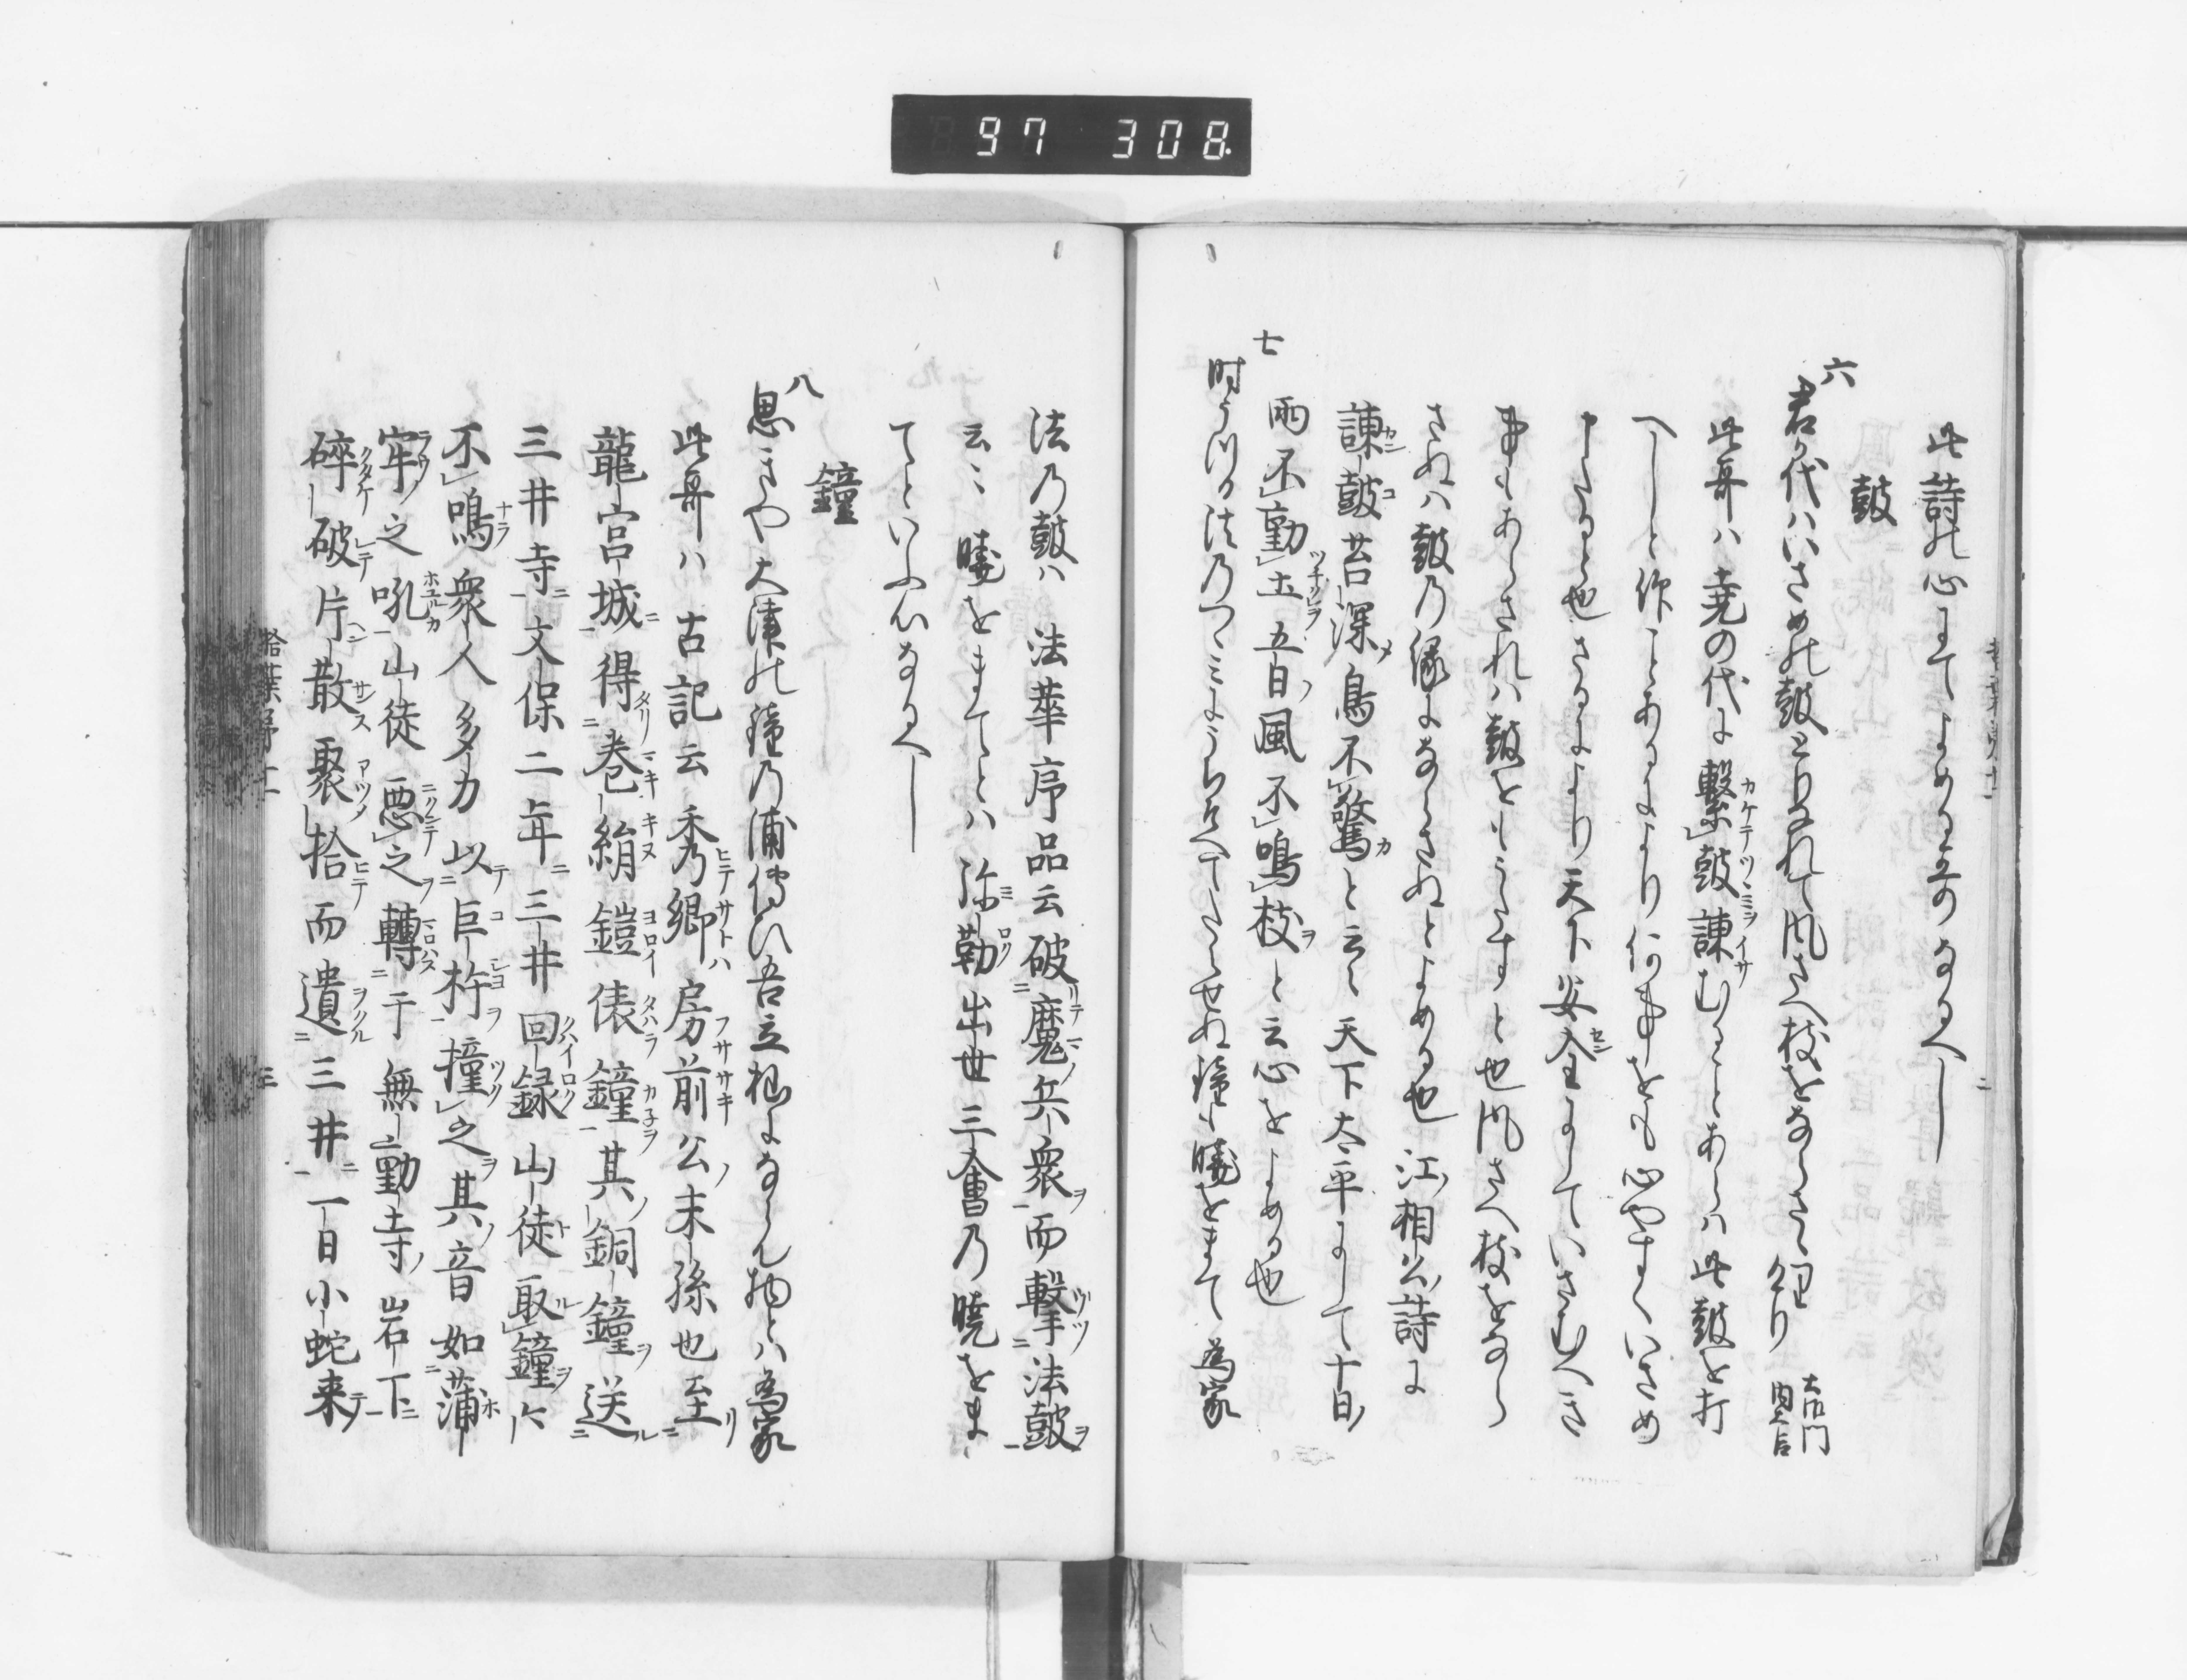 97 308
此詩の心にてよめる哥なるへし
鼓
六
君か代ハいさめの鼓とりなれて風さへ枝をならさゝりけり 大炊門内大臣
此哥ハ堯の代に繋鼓諌むることあらハ此鼓を打
へしと作ことあるにより何事をも心やすくいさめ
申さると也さるにより天下安全にしていさむへき
事もあらされハ鼓をもうたすと也風さへ枝をなら
さぬハ鼓の縁にならさぬとよめる也江相公詩に
諌鼓苔深鳥不驚と云々天下太平にして十日
雨不動土五日風不鳴枝と云心をよめる也
七
時うつる法のつゝみにうちそへてたえせぬ鐘に暁をまて 為家
法乃鼓ハ法華序品云破魔兵衆而撃法鼓
云々暁をまてとハ弥勒出世三會乃暁をま
てといふ心なるへし
鐘
八
思ひきや大津の鐘乃浦傳ひ吾立杣にならん物とハ 為家
此哥ハ古記云秀郷房前公末孫也至
龍宮城得巻絹鎧俵鐘其銅鐘送
三井寺文保二年三井回録山徒取鐘
不鳴衆人多力以巨杵撞之其音如蒲
牢之吼山徒悪之轉于無動寺岩下
碎破片散聚拾而遺三井一日小蛇来
拾葉抄 十二 三